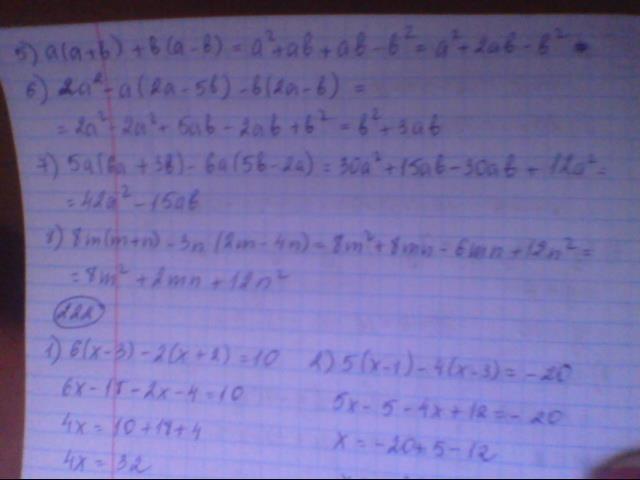 5) a(a+b) + b(a-b) = a²+ab+ab-b² = a²+2ab-b²
6) 2a²-a(2a-5b)-b(2a-b) =
= 2a²-2a²+5ab-2ab+b² = b²+3ab
7) 5a(6a+3b)-6a(5b-2a) = 30a²+15ab-30ab+12a² =
= 42a²-15ab
8) 8m(m+n)-3n(2m-4n) = 8m²+8mn-6mn+12n² =
= 8m²+2mn+12n²
222
1) 6(x-3)-2(x+2)=10
6x-18-2x-4=10
4x=10+18+4
4x=32
2) 5(x-1)-4(x-3)=-20
5x-5-4x+12=-20
x=-20+5-12